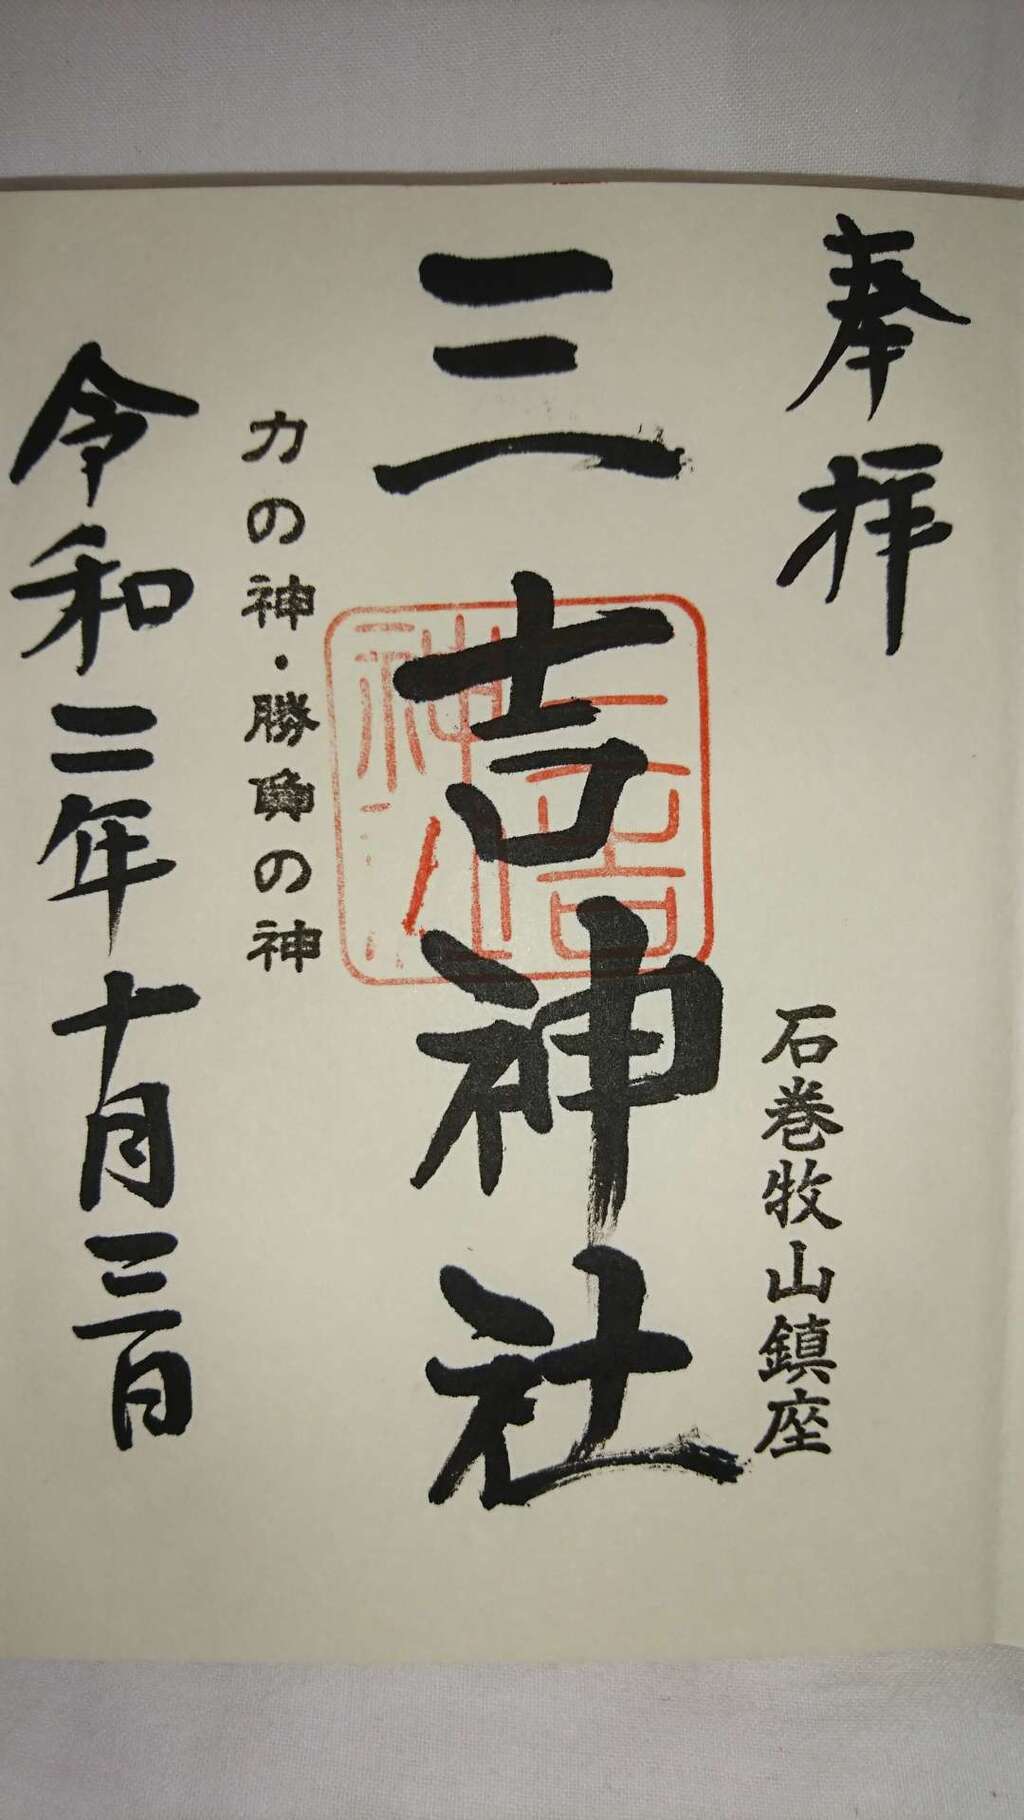 奉拝
石巻牧山鎮座
三吉神社
三吉神社
力の神・勝負の神
令和二年十月三日